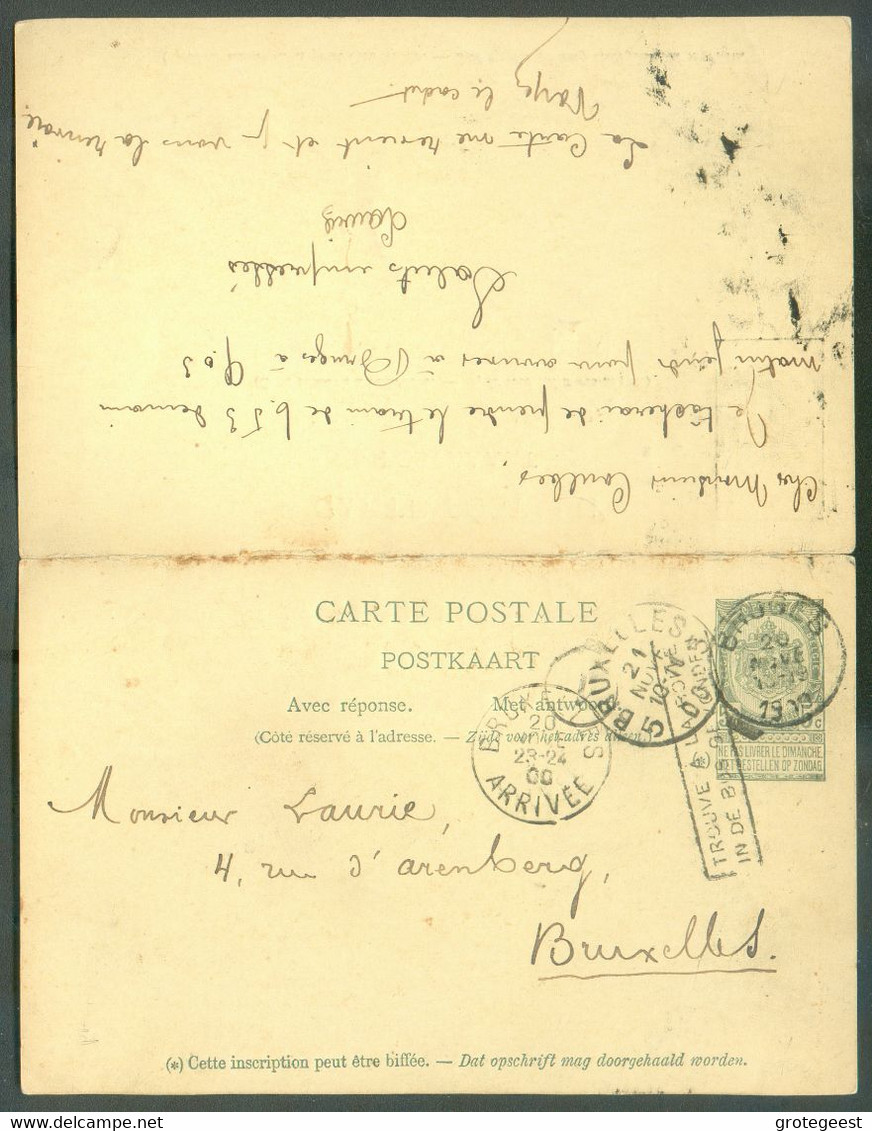 Cher Monsieur Caulbes,
Je tâcherai de prendre le train de 6.53 demain
matin jeudi pour arriver à Bruges à 9.03
Saluts empressés
Laurie
La Carte me revient et je vous la renvoie
le cadet
CARTE POSTALE
POSTKAART
Avec réponse. Met antwoord.
(Côté réservé à l'adresse. — Zijde voor het adres alleen
NE PAS LIVRER LE DIMANCHE
NIET BESTELLEN OP ZONDAG
BRUGES
20
NOVE
1900
BRUXELLES 5
21
NOV
10
00
BRUXELLES
20
23-24
00
ARRIVÉE
TROUVÉ À LA BOITE
IN DE BUS GEVONDEN
Monsieur Laurie,
4, rue d'arenberg,
Bruxelles.
(*) Cette inscription peut être biffée. — Dat opschrift mag doorgehaald worden.
delcampe.net
grotegeest